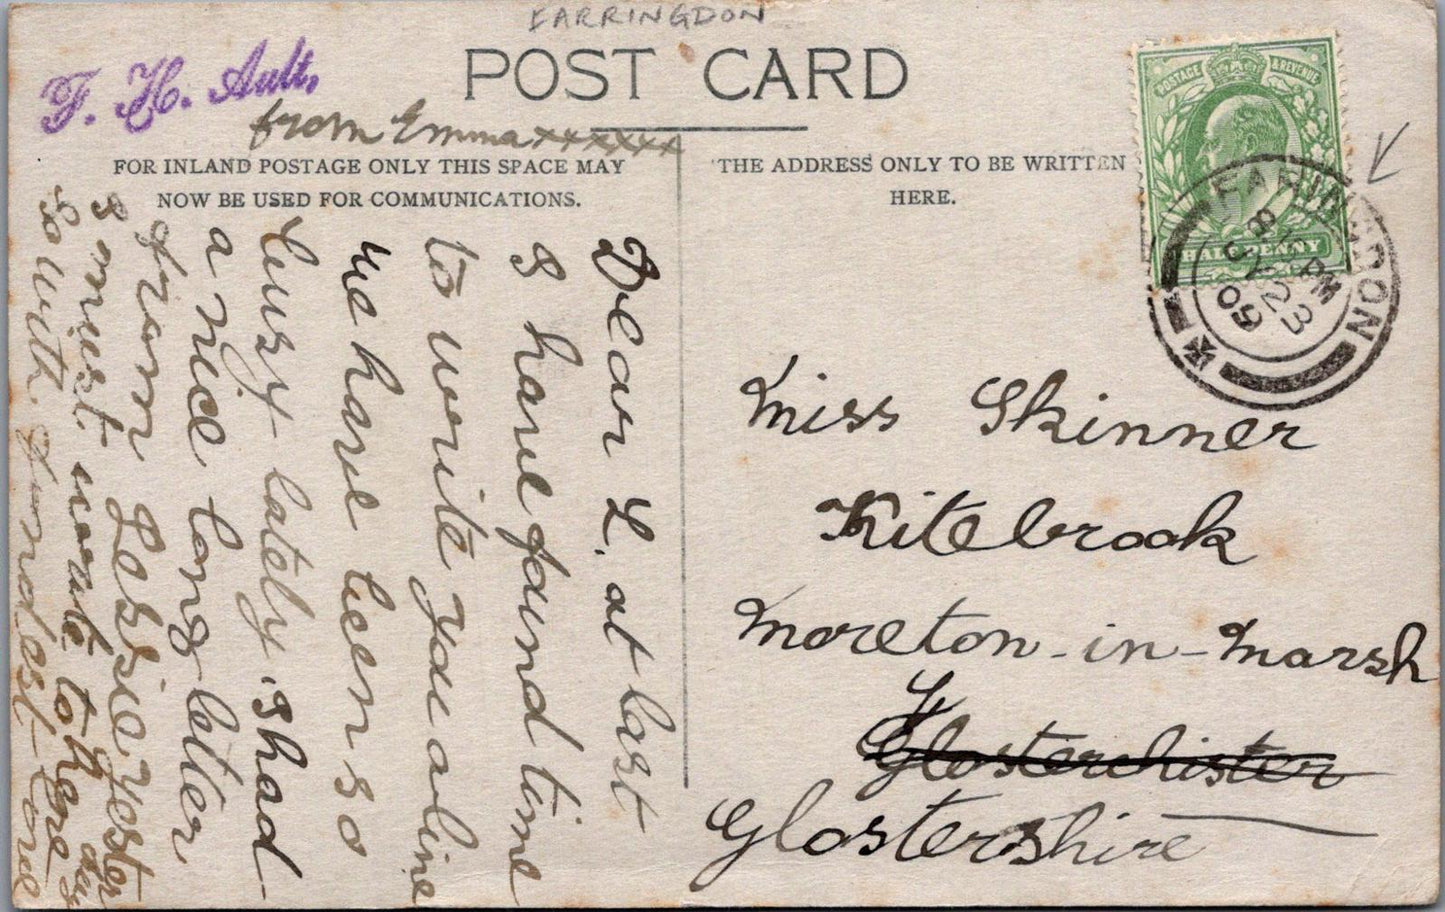 FARRINGDON
POST CARD
F. H. Ault,
from Emma xxxxxx
FOR INLAND POSTAGE ONLY THIS SPACE MAY
NOW BE USED FOR COMMUNICATIONS.
THE ADDRESS ONLY TO BE WRITTEN
HERE.
POSTAGE & REVENUE
HALFPENNY
FARINGDON
8 PM
JY 23
09
Dear L. at last
I have found time
to write you a line
we have been so
busy lately. I had
a nice long letter
from Jessie yester
day
I must write to her
so with fondest love
Miss Skinner
Kitebrook
Moreton-in-Marsh
Glosterchister
Glostershire